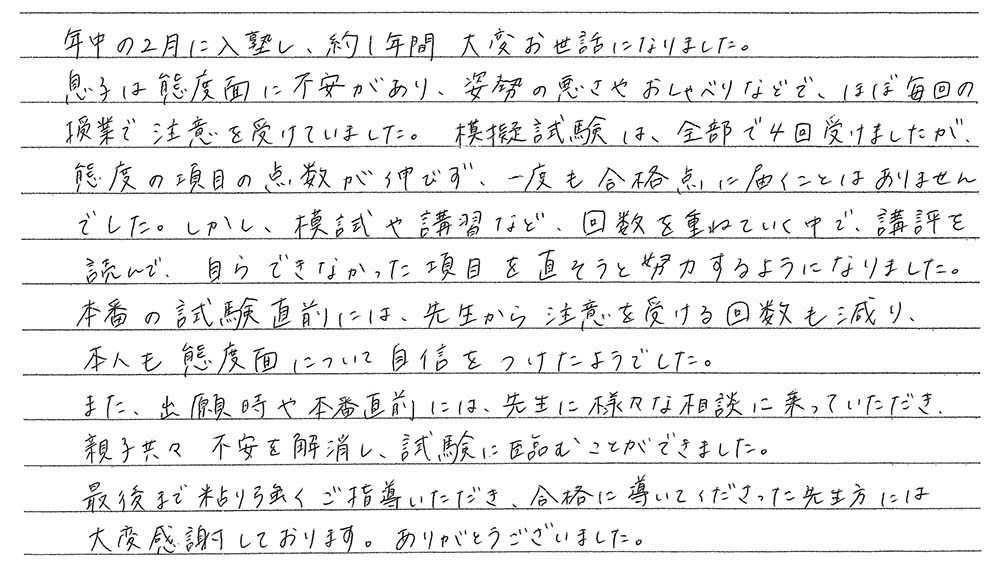 年中の2月に入塾し、約1年間 大変お世話になりました。
息子は態度面に不安があり、姿勢の悪さやおしゃべりなどで、ほぼ毎回の
授業で注意を受けていました。 模擬試験は、全部で4回受けましたが、
態度の項目の点数が伸びず、一度も合格点に届くことはありません
でした。しかし、模試や講習など、回数を重ねていく中で、講評を
読んで、自らできなかった項目を直そうと努力するようになりました。
本番の試験直前には、先生から注意を受ける回数も減り、
本人も態度面について自信をつけたようでした。
また、出願時や本番直前には、先生に様々な相談に乗っていただき、
親子共々 不安を解消し、試験に臨むことができました。
最後まで粘り強くご指導いただき、合格に導いてくださった先生方には
大変感謝しております。ありがとうございました。